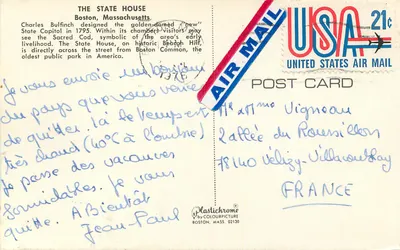 THE STATE HOUSE
Boston, Massachusetts
Charles Bulfinch designed the golden-domed "new"
State Capitol in 1795. Within its chambers visitors may
see the Sacred Cod, symbolic of the area's early
livelihood. The State House, on historic Beacon Hill,
is directly across the street from Boston Common, the
oldest public park in America.
AIR MAIL
USA 21¢
UNITED STATES AIR MAIL
POST CARD
Je vous envoie un bonjour
du pays que vous venez
de quitter. Ici le temps est
très chaud (40°C à l'ombre)
je passe des vacances
formidables. Je vous
quitte. A Bientôt
Jean-Paul
Mr et Mme Vigneau
2 allée du Roussillon
78140 Vélizy-Villacoublay
FRANCE
Plastichrome
BY COLOURPICTURE
BOSTON, MASS. 02130